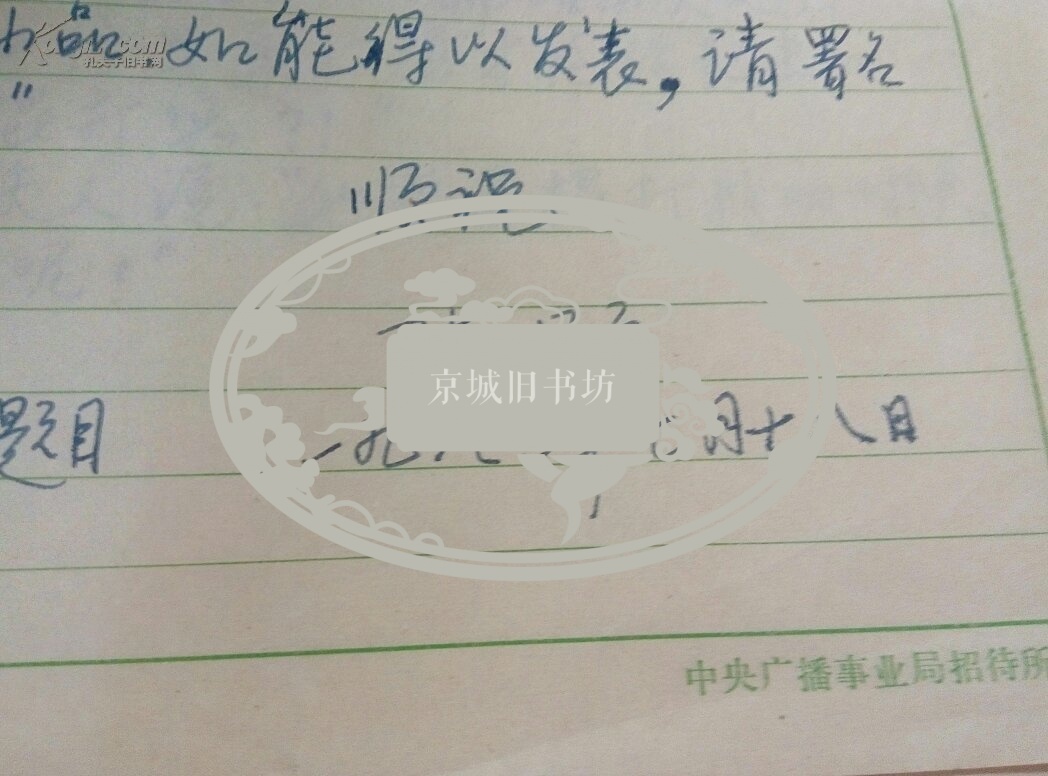 小品 如能得以发表，请署名
Kongfz.com
孔夫子旧书网
"
顺祝
京城旧书坊
题目
一九八 月十八日
中央广播事业局招待所